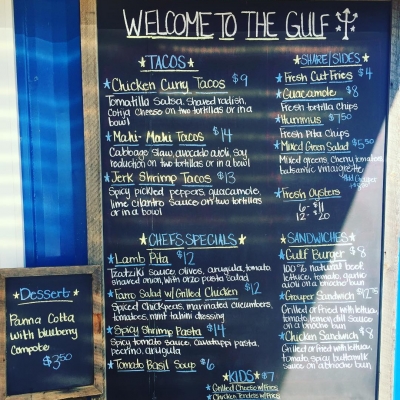 WELCOME TO THE GULF
TACOS
Chicken Curry Tacos $9
Tomatilla Salsa, Shaved radish,
Cotija Cheese on two tortillas or in a
bowl
Mahi-Mahi Tacos $14
Cabbage slaw, avocado aioli, soy
reduction on two tortillas or in a bowl
Jerk Shrimp Tacos $13
Spicy pickled peppers, guacamole,
lime cilantro sauce on two tortillas
or in a bowl
CHEFS SPECIALS
Lamb Pita $12
Tzatziki sauce, olives, arugula, tomato,
shaved onion, with orzo pasta salad
Farro Salad w/ Grilled Chicken $12
Spiced chickpeas, marinated cucumbers,
tomatoes, mint tahini dressing
Spicy Shrimp Pasta $14
Spicy tomato sauce, cavatappi pasta,
pecorino, arugula
Tomato Basil Soup $6
SHARE|SIDES
Fresh Cut Fries $4
Guacamole $8
Fresh tortilla Chips
Hummus $7.50
Fresh Pita Chips
Mixed Green Salad $5.50
Mixed greens, cherry tomatoes,
balsamic vinaigrette
Add Grouper
Fresh Oysters
6- $11
12- $20
SANDWICHES
Gulf Burger $8
100% natural beef,
lettuce, tomato, garlic
aioli on a brioche bun
Grouper Sandwich $12.75
Grilled or fried with lettuce,
tomato, lemon dill sauce
on a brioche bun
Chicken Sandwich $8
Grilled or fried with lettuce,
tomato, spicy buttermilk
sauce on a brioche bun
KIDS $7
Grilled Cheese w/ Fries
Chicken Tenders w/ Fries
Dessert
Panna Cotta
with blueberry
compote
$3.50